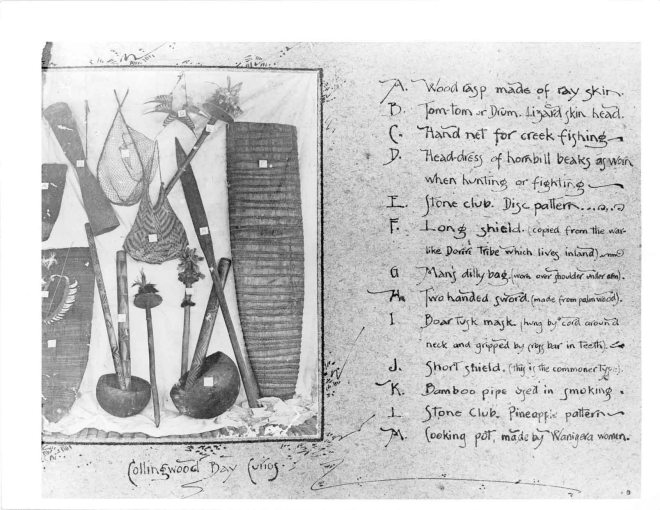 A. Wood rasp made of ray skin.
B. Tom-tom or Drum. Lizard skin head.
C. Hand net for creek fishing
D. Head-dress of hornbill beaks as worn
when hunting or fighting
E. Stone club. Disc pattern....
F. Long shield. (copied from the war-
like Doriri Tribe which lives inland)
G Man's dilly bag. (worn over shoulder under arm).
H. Two handed sword. (made from palm wood).
I Boar Tusk mask. (hung by cord around
neck and gripped by cross bar in teeth).
J. Short shield. (this is the commoner type).
K. Bamboo pipe used in smoking.
L. Stone Club. Pineapple pattern
M. Cooking pot, made by Wanigera women.
Collingwood Bay Curios